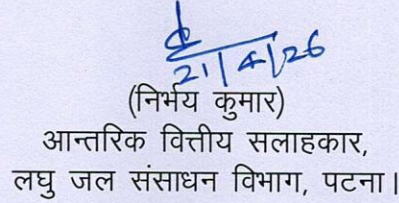 21/4/26
(निर्भय कुमार)
आन्तरिक वित्तीय सलाहकार,
लघु जल संसाधन विभाग, पटना।